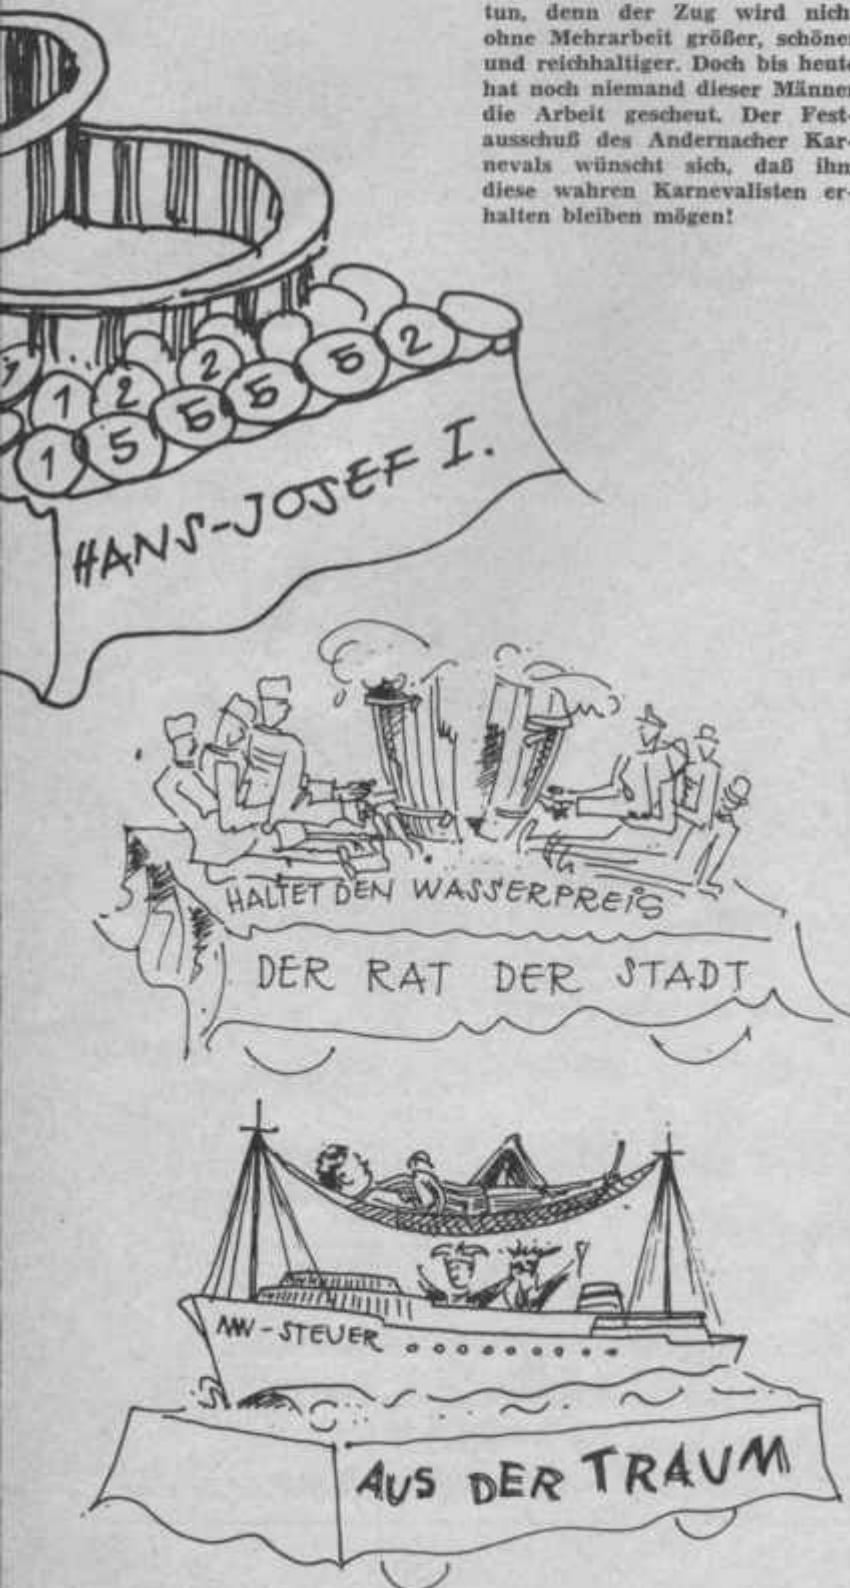 tun, denn der Zug wird nich
ohne Mehrarbeit größer, schöner
und reichhaltiger. Doch bis heute
hat noch niemand dieser Männer
die Arbeit gescheut. Der Fest-
ausschuß des Andernacher Kar-
nevals wünscht sich, daß ihm
diese wahren Karnevalisten er-
halten bleiben mögen!
1 2 2 5 2
1 5 5 5
HANS-JOSEF I.
HALTET DEN WASSERPREIS
DER RAT DER STADT
MW-STEUER
AUS DER TRAUM